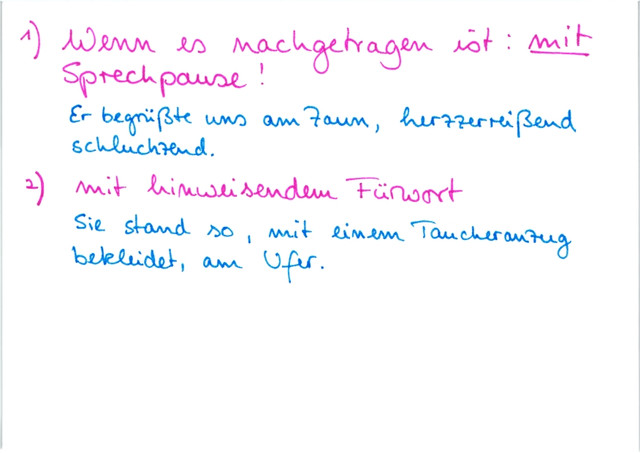 1) Wenn es nachgetragen ist: mit
Sprechpause!
Er begrüßte uns am Zaun, herzzerreißend
schluchzend.
2) mit hinweisendem Fürwort
Sie stand so, mit einem Taucheranzug
bekleidet, am Ufer.